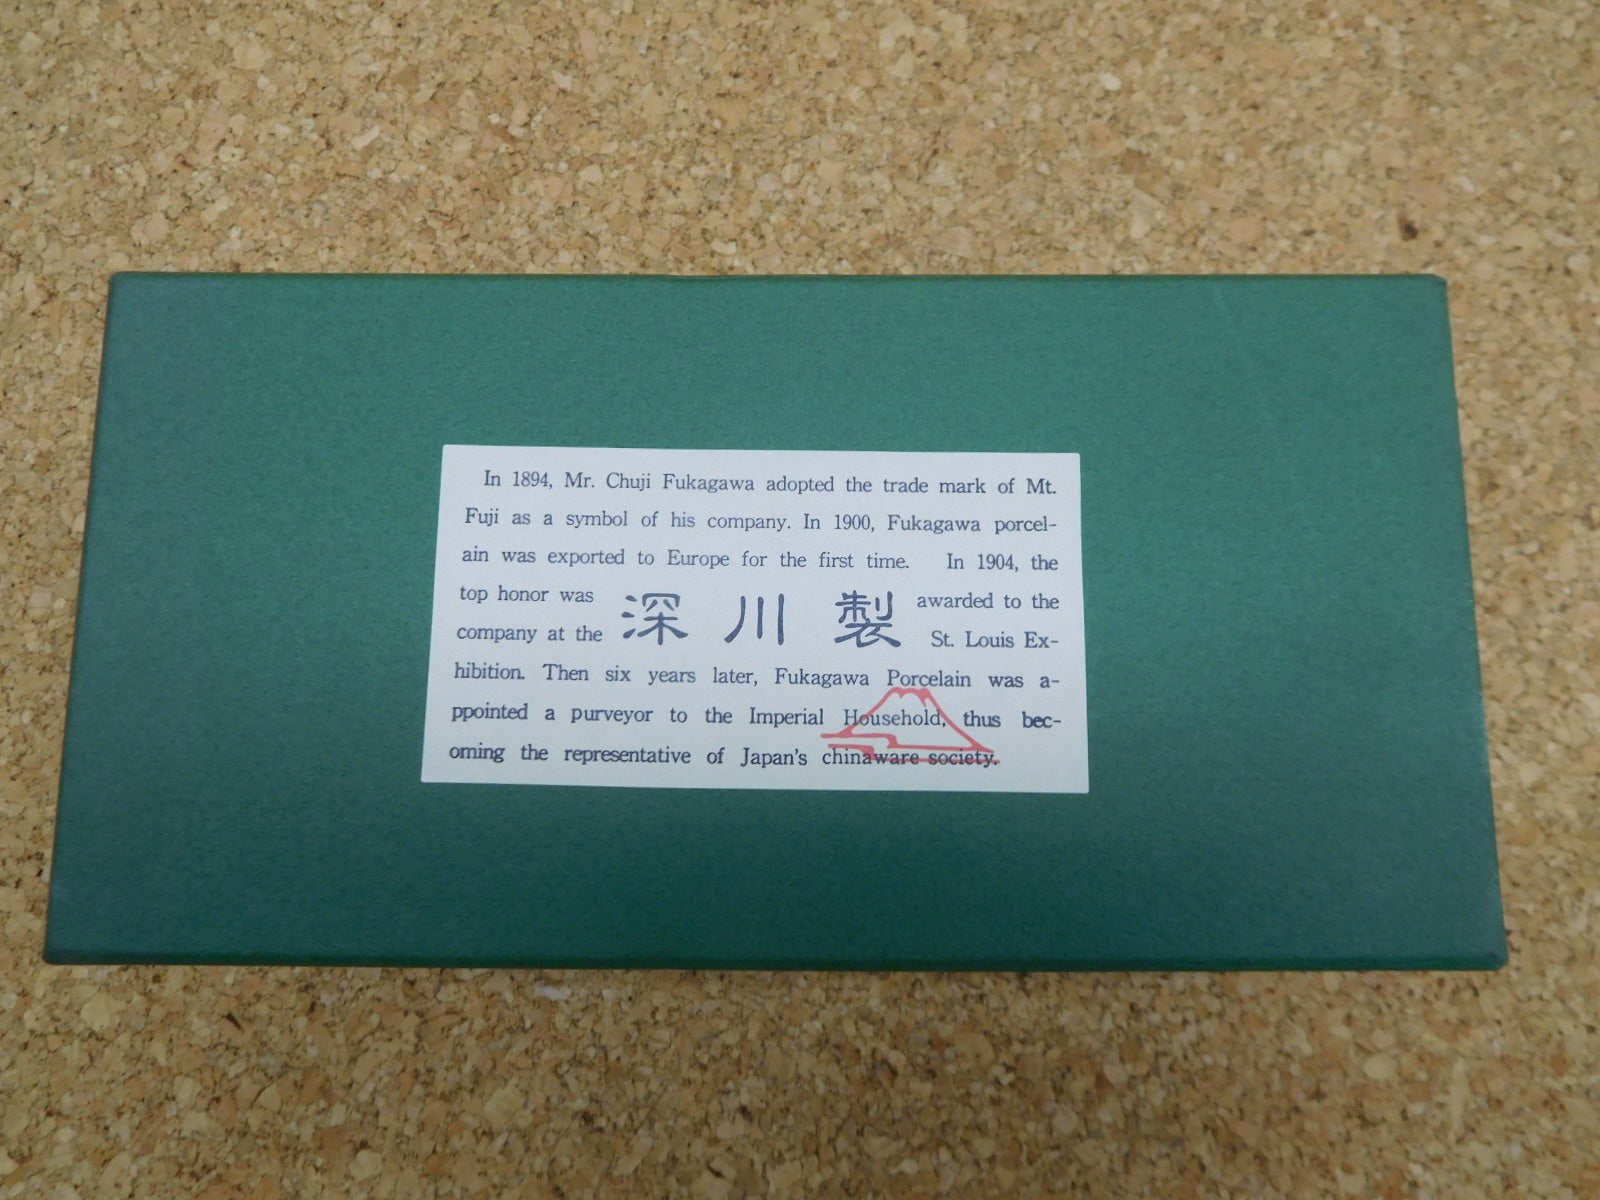 In 1894, Mr. Chuji Fukagawa adopted the trade mark of Mt.
Fuji as a symbol of his company. In 1900, Fukagawa porcel-
ain was exported to Europe for the first time. In 1904, the
top honor was awarded to the
深川製
company at the St. Louis Ex-
hibition. Then six years later, Fukagawa Porcelain was a-
ppointed a purveyor to the Imperial Household, thus bec-
oming the representative of Japan's chinaware society.